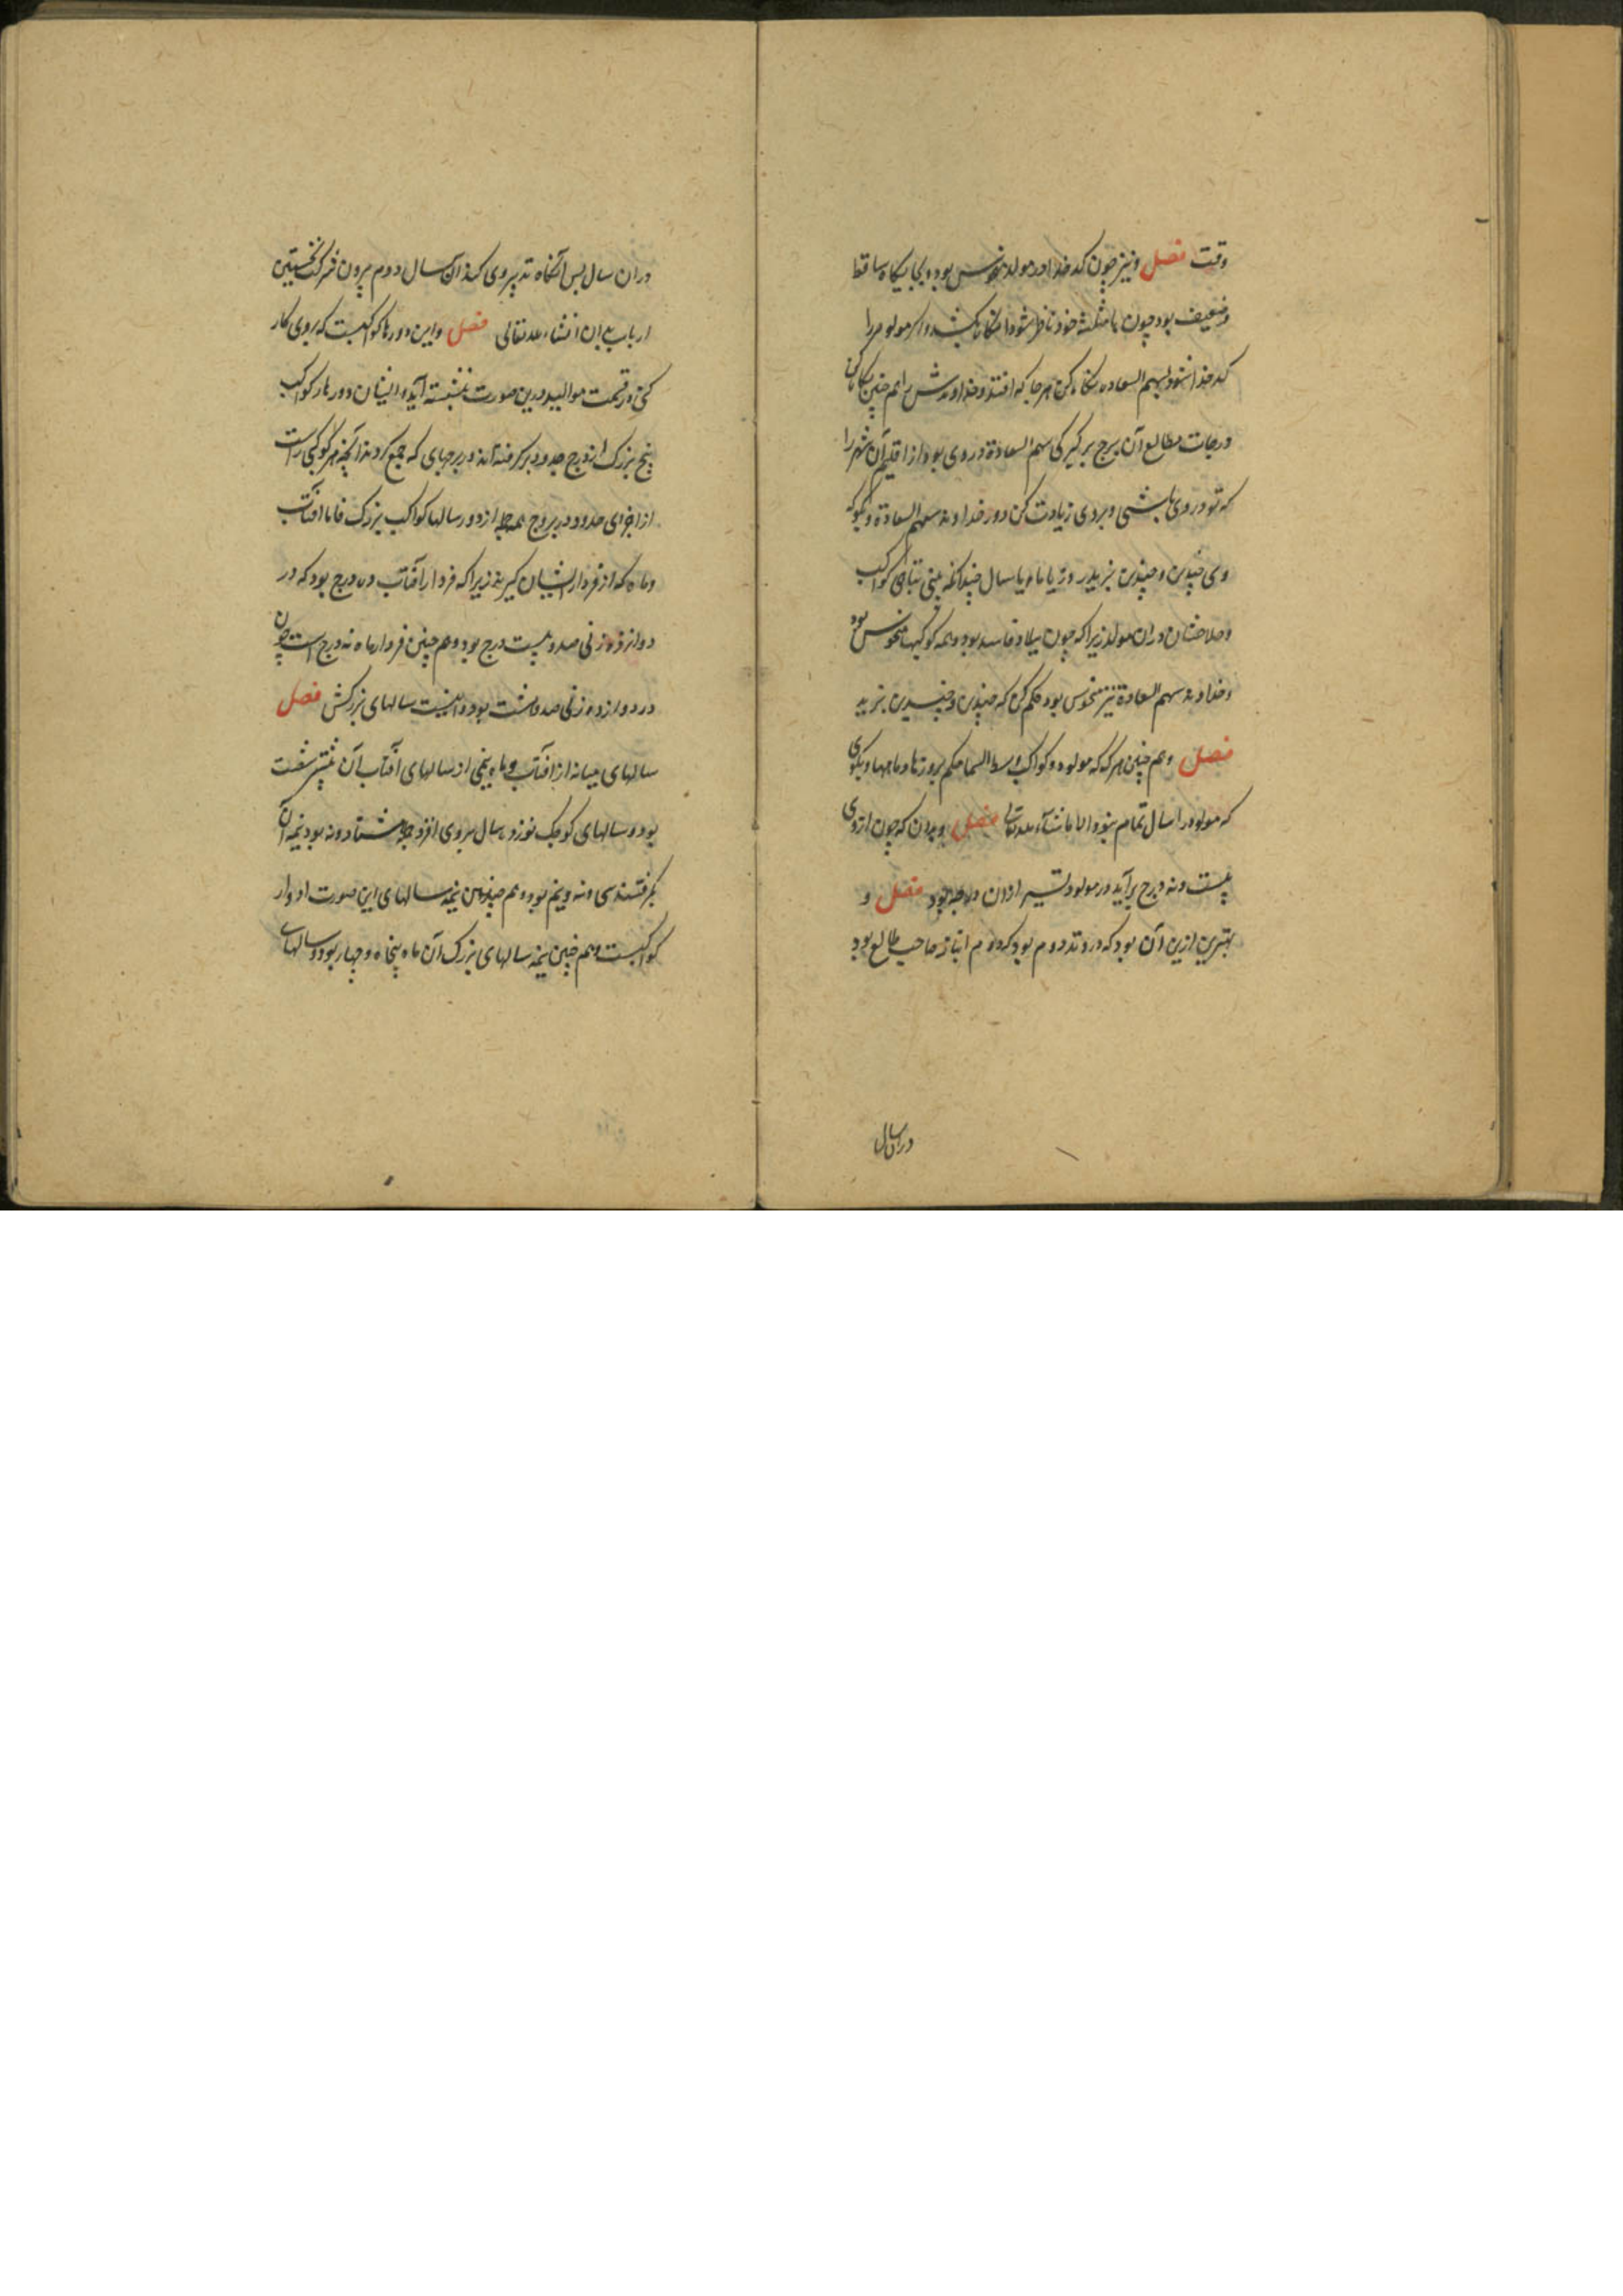 وقت فصل ونیز چون کدخدا در مولد منحوس بود و بجایگاه ساقط
وضعیف بود چون با مثلثه خود ناظر شود
کدخدا نبود بسهم السعاده نگاه کن هر جا که افتد و خداوندش را هم چنین نگاه کن
ودرجات مطالع آن برج برگیر کی سهم السعادة در وی بود از اقلیم آن شهر را
که تو در وی باشی و بر وی زیادت کن دور خداوند سهم السعادة وبگو که
وی چندین وچندین بزید روز یا ماه یا سال چندانکه بینی تباهی کواکب
وصلاحشان در ان مولد زیرا که چون میلاد فاسد بود وهمه کوکبها منحوس بود
وخداوند سهم السعادة نیز منحوس بود حکم کن که چندین وچندین بزید
فصل وهم چنین هر که که مولود و کواکب وسط السما حکم بروزها وماهها وبگوی
که مولود را سال تمام نبود الا ما شآء الله تعالی فصل وبدان که چون از وی
بیست ونه درج برآید در مولود تسییر از ان درجه بود فصل و
بهترین ازین آن بود که در وتد دوم بود که دوم انباز صاحب طالع بود
دران سال
دران سال پس آنگاه تدبیر وی کند ان سال دوم برون شرکت نخستین
ارباب بدان انشاء الله تعالی فصل واین دورها کواکبست که بروی کار
کنی در قسمت موالید درین صورت نبشته آید وایشان دورهاء کواکب
پنج بزرک از درج حدود برگرفته اند در برجهای که جمع کردند آنچه هر کوکبی راست
از اجزای حدود در بروج همه از دور سالها کواکب بزرک فاما افتاب
وماه که از فردار ایشان گیرند زیرا که فردار آفتاب ده درج بود که در
دوازده زنی صد وبیست درج بود وهم چنین فردار ماه نه درج است چون
در دوازده زنی صد وهشت بود واینست سالهای بزرکش فصل
سالهای میانه از افتاب وماه یعنی از سالهای آفتاب آن
بود وسالهای کوچک نوزده سال بروی افزود جمله هشتاد ونه بود نیمه آن
بگرفتند سی ونه ونیم بود وهم چنین نیمه سالهای این صورت ادوار
کواکبست وهم چنین نیمه سالهای بزرک آن ماه پنجاه وچهار بود وسالهای